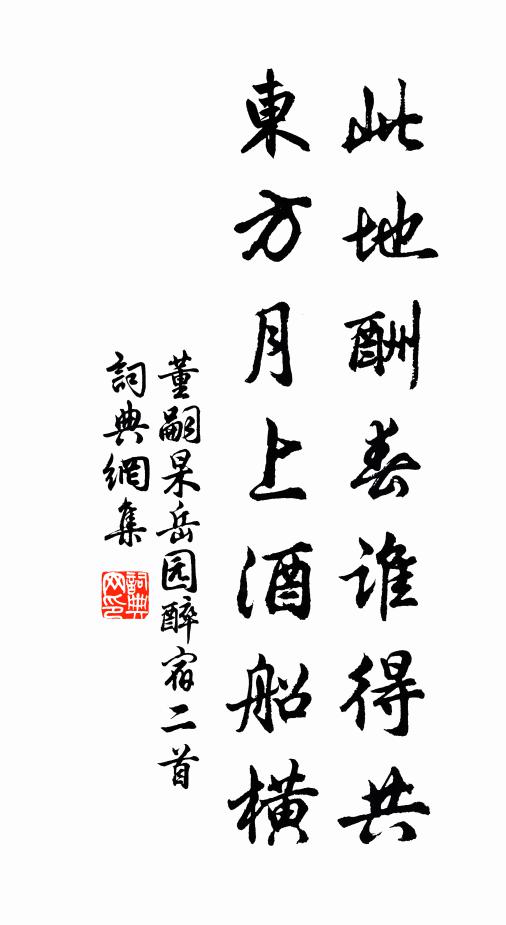 此地酬春谁得共
東方月上酒船橫
董嗣杲岳园醉宿二首
詞典網集
詞典網印